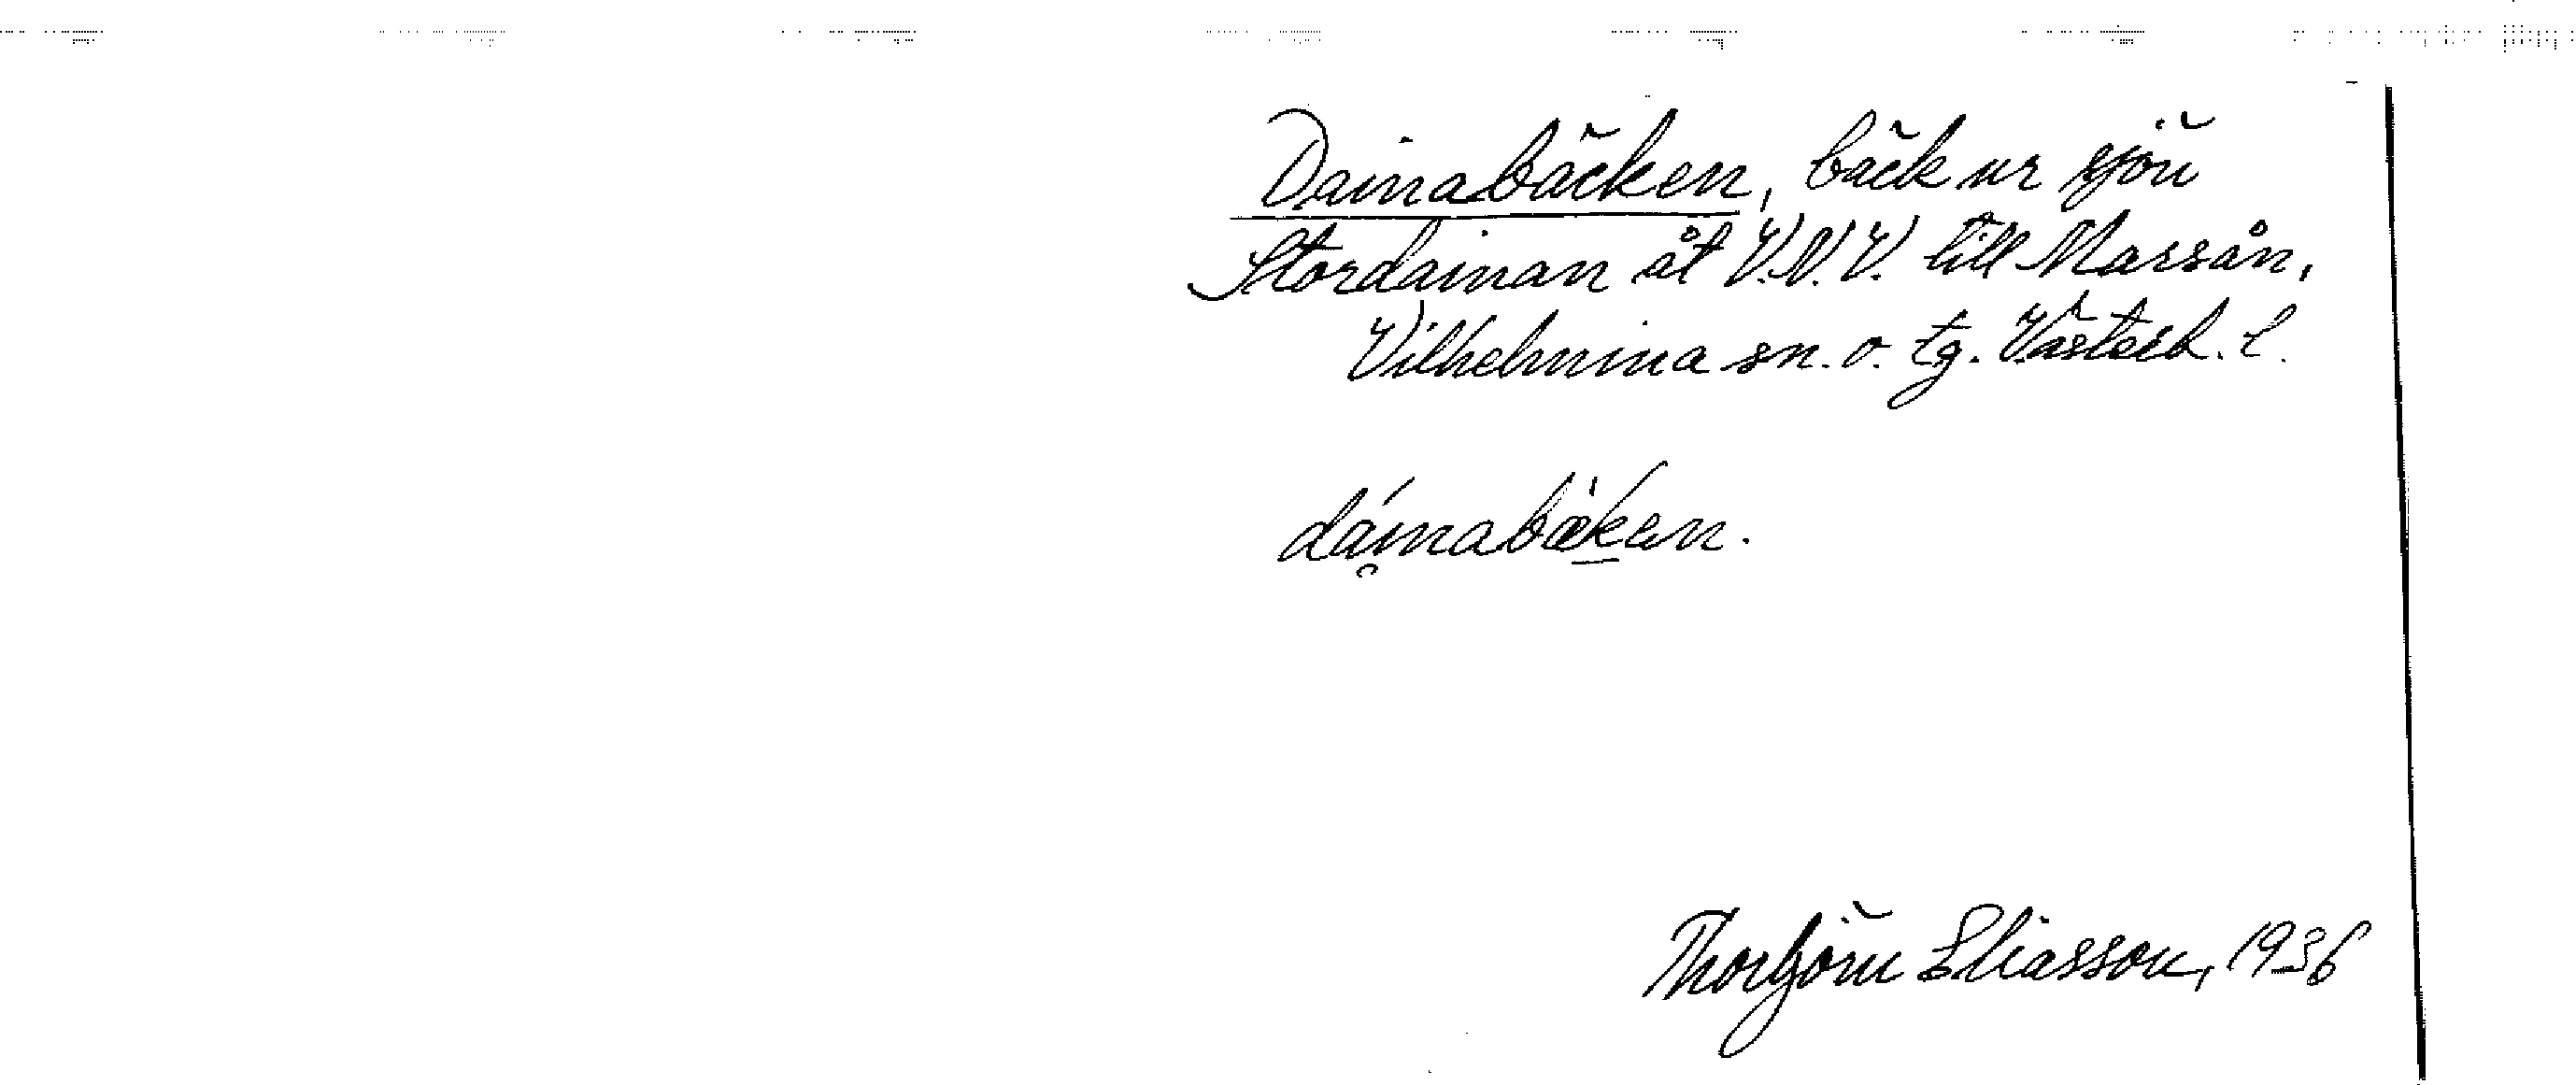 Dainabäcken, bäck ur sjön
Stordainan åt V.N.V. till Marsån,
Vilhelmina sn. o. tg. Västerb. l.
dái̯nabæ̀ken.
Thorbjörn Eliasson, 1936